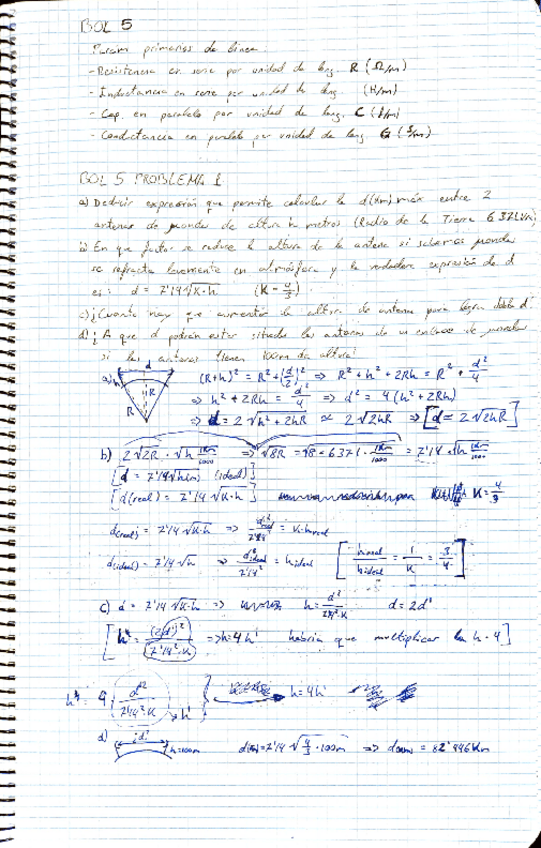 BOL 5
Param primarios de linea
- Resistencia en serie por unidad de long. R (Ω/m)
- Inductancia en serie por unidad de long. (H/m)
- Cap. en paralelo por unidad de long. C (f/m)
- Conductancia en paralelo por unidad de long G (S/m)
BOL 5 PROBLEMA 1
a) Deducir expresión que permite calcular la d(Km) máx entre 2
antenas de de altura h metros (Radio de la Tierra 6371Km)
b) En que factor se reduce la altura de la antena si
se refracta levemente en atmósfera y la verdadera expresión de d
es: d = 7'14√K·h (K = 4/3)
c) ¿Cuanto hay que aumentar la altura de antena para doble d
d) ¿A que d podrán estar situadas las antenas de un enlace de
si las antenas tienen 100m de altura?
a) d h R R (R+h)² = R² + (d/2)² ⇒ R² + h² + 2Rh = R² + d²/4
⇒ h² + 2Rh = d²/4 ⇒ d² = 4(h² + 2Rh)
⇒ d = 2√h² + 2hR ∝ 2√2hR ⇒ [d = 2√2hR]
b) 2√2R · √h 1Km/1000 ⇒ √8R = √8 · 6371 · 1Km/1000 = 7'14 · √h 1Km/1000
[d = 7'14√h(m) (ideal)]
[d(real) = 7'14 √K·h] K = 4/3
d(real) = 7'14 √K·h ⇒ d²real/7'14² = K·hreal
d(ideal) = 7'14 √h ⇒ d²ideal/7'14² = hideal [hreal/hideal = 1/K = 3/4]
c) d = 7'14 √K·h ⇒ h = d²/7'14²·K d = 2d'
[h = (2d')²/7'14²·K ⇒ h = 4h' habría que multiplicar la h · 4]
h = 4 (d'²/7'14²·K) → h' } h = 4h'
d) ¿d? h=100m d(Km) = 7'14 √4/3 · 100m ⇒ d(Km) = 82'446Km